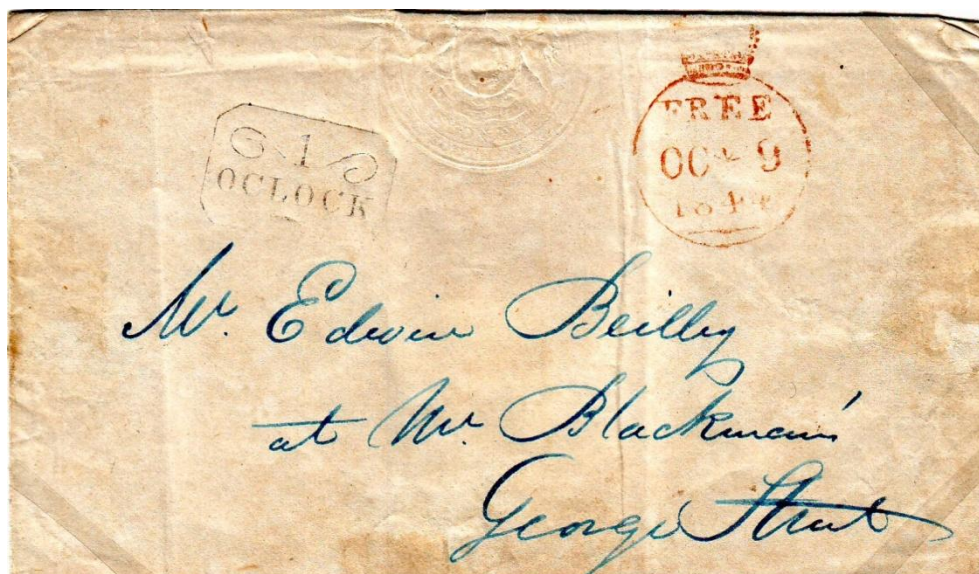 1
OCLOCK
FREE
OC 9
1844
Mr. Edwin Beilby
at Mr. Blackman's
George Street